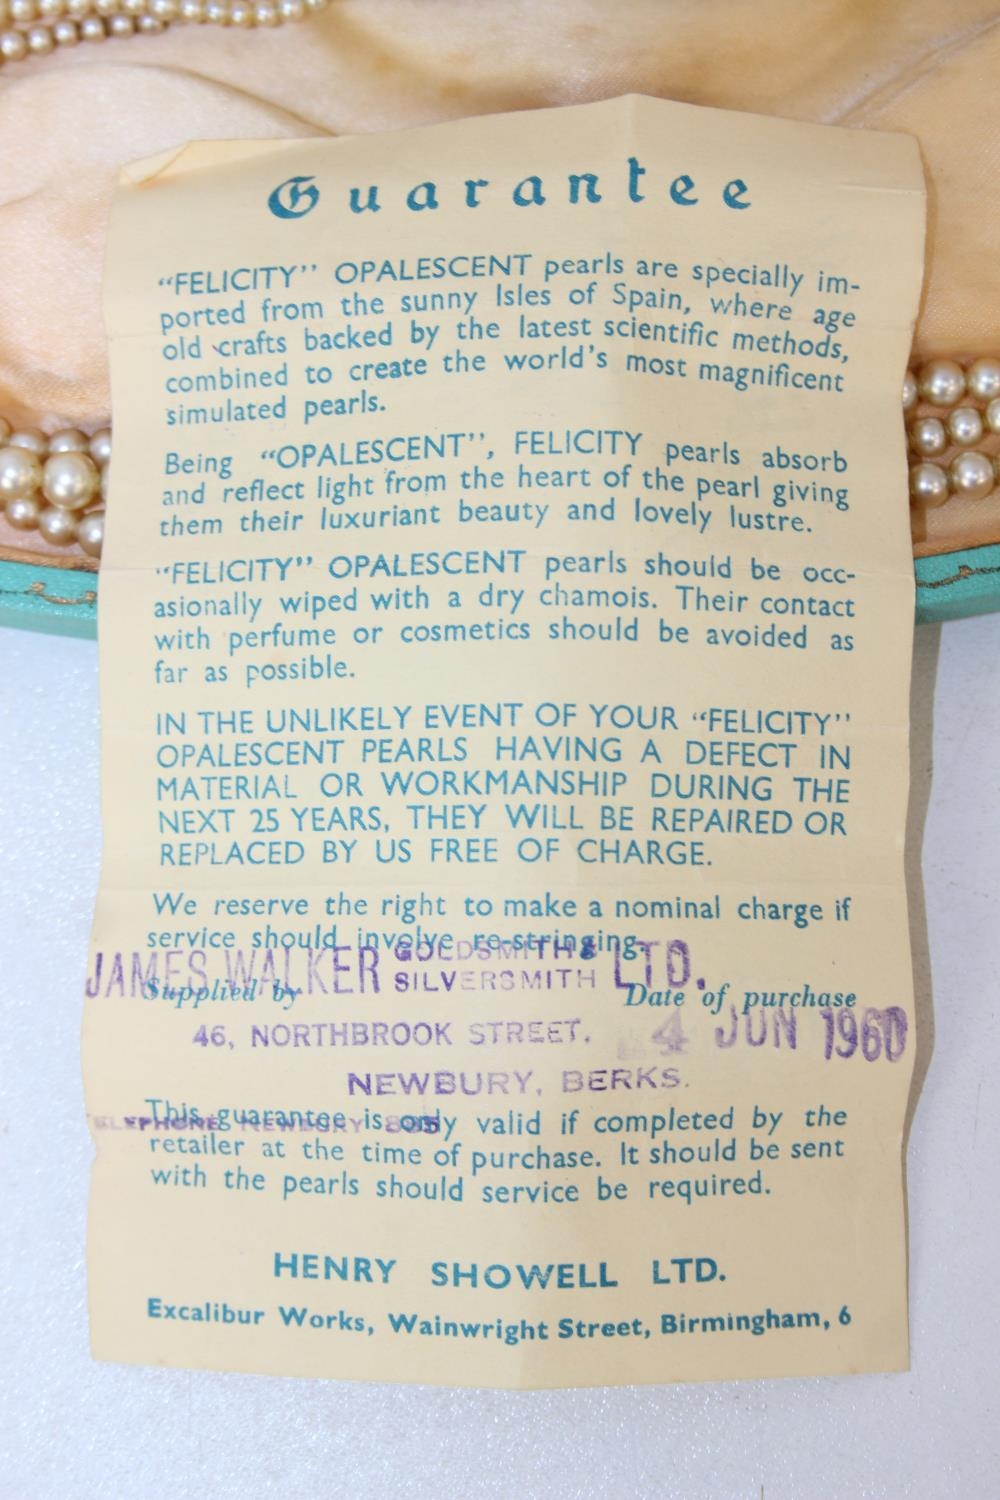 Guarantee
"FELICITY" OPALESCENT pearls are specially im-
ported from the sunny Isles of Spain, where age
old crafts backed by the latest scientific methods,
combined to create the world's most magnificent
simulated pearls.
Being "OPALESCENT", FELICITY pearls absorb
and reflect light from the heart of the pearl giving
them their luxuriant beauty and lovely lustre.
"FELICITY" OPALESCENT pearls should be occ-
asionally wiped with a dry chamois. Their contact
with perfume or cosmetics should be avoided as
far as possible.
IN THE UNLIKELY EVENT OF YOUR "FELICITY"
OPALESCENT PEARLS HAVING A DEFECT IN
MATERIAL OR WORKMANSHIP DURING THE
NEXT 25 YEARS, THEY WILL BE REPAIRED OR
REPLACED BY US FREE OF CHARGE.
We reserve the right to make a nominal charge if
service should involve re-stringing.
JAMES WALKER GOLDSMITH & SILVERSMITH LTD.
Supplied by Date of purchase
46, NORTHBROOK STREET, 4 JUN 1960
NEWBURY, BERKS.
TELEPHONE NEWBURY 835
This guarantee is only valid if completed by the
retailer at the time of purchase. It should be sent
with the pearls should service be required.
HENRY SHOWELL LTD.
Excalibur Works, Wainwright Street, Birmingham, 6